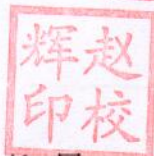 赵校
辉印